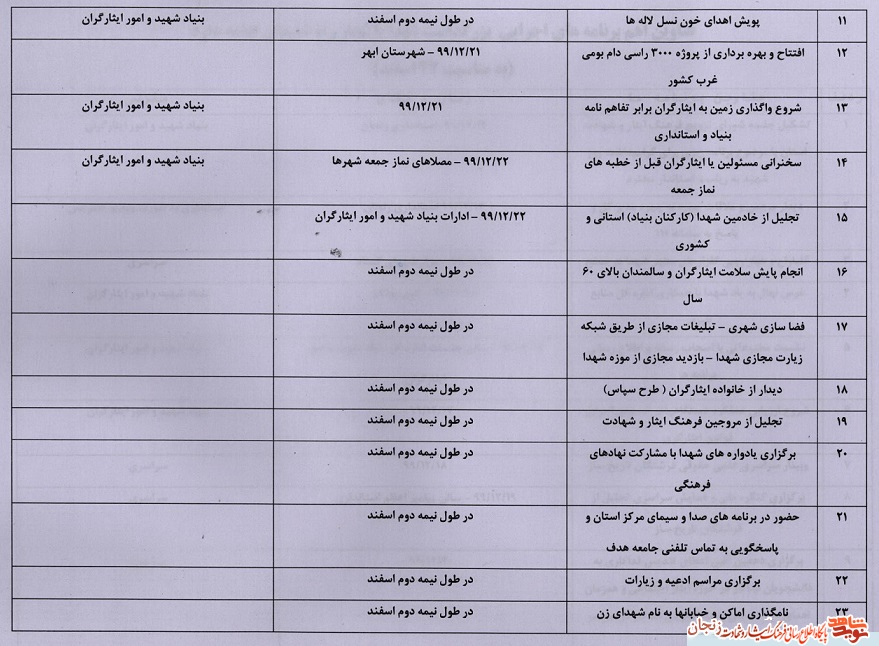 ۱۱ پویش اهدای خون نسل لاله ها در طول نیمه دوم اسفند بنیاد شهید و امور ایثارگران
۱۲ افتتاح و بهره برداری از پروژه ۳۰۰۰ راسی دام بومی ۹۹/۱۲/۲۱ – شهرستان ابهر
غرب کشور
۱۳ شروع واگذاری زمین به ایثارگران برابر تفاهم نامه ۹۹/۱۲/۲۱ بنیاد شهید و امور ایثارگران
بنیاد و استانداری
۱۴ سخنرانی مسئولین یا ایثارگران قبل از خطبه های ۹۹/۱۲/۲۲ – مصلاهای نماز جمعه شهرها بنیاد شهید و امور ایثارگران
نماز جمعه
۱۵ تجلیل از خادمین شهدا (کارکنان بنیاد) استانی و ۹۹/۱۲/۲۲ – ادارات بنیاد شهید و امور ایثارگران
کشوری
۱۶ انجام پایش سلامت ایثارگران و سالمندان بالای ۶۰ در طول نیمه دوم اسفند
سال
۱۷ فضا سازی شهری – تبلیغات مجازی از طریق شبکه در طول نیمه دوم اسفند
زیارت مجازی شهدا – بازدید مجازی از موزه شهدا
۱۸ دیدار از خانواده ایثارگران ( طرح سپاس) در طول نیمه دوم اسفند
۱۹ تجلیل از مروجین فرهنگ ایثار و شهادت در طول نیمه دوم اسفند
۲۰ برگزاری یادواره های شهدا با مشارکت نهادهای در طول نیمه دوم اسفند
فرهنگی
۲۱ حضور در برنامه های صدا و سیمای مرکز استان و در طول نیمه دوم اسفند
پاسخگویی به تماس تلفنی جامعه هدف
۲۲ برگزاری مراسم ادعیه و زیارات در طول نیمه دوم اسفند
۲۳ نامگذاری اماکن و خیابانها به نام شهدای زن در طول نیمه دوم اسفند
نوید شاهد پایگاه اطلاع رسانی فرهنگ ایثار و شهادت زنجان